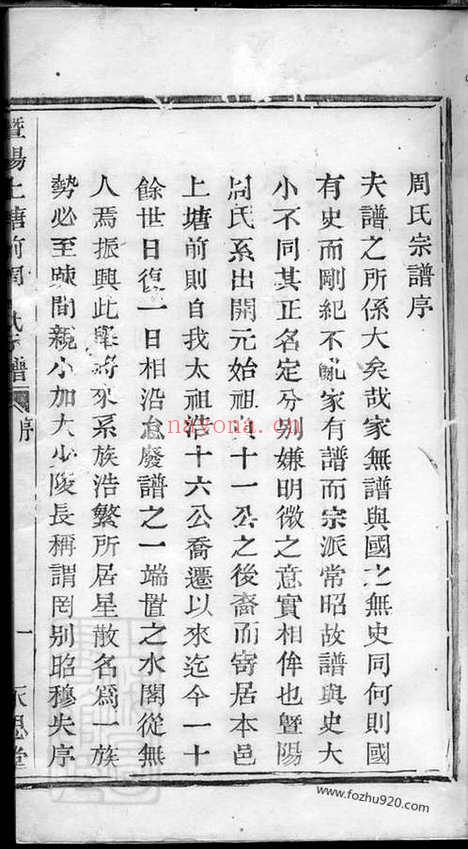 周氏宗譜序
夫譜之所係大矣哉家無譜與國之無史同何則國
有史而剛紀不亂家有譜而宗派常昭故譜與史大
小不同其正名定分別嫌明微之意實相侔也暨陽
周氏系出開元始祖 十一公之後裔而寄居本邑
上塘前則自我太祖浩十六公喬遷以來迄今一十
餘世日復一日相沿怠廢譜之一端置之水閣從無
人焉振興此舉將來系族浩繁所居星散名爲一族
勢必至踈間親小加大少陵長稱謂罔别昭穆失序
暨陽上塘前周氏宗譜 序 一 永思堂
nayona.cn
www.fozhu920.com